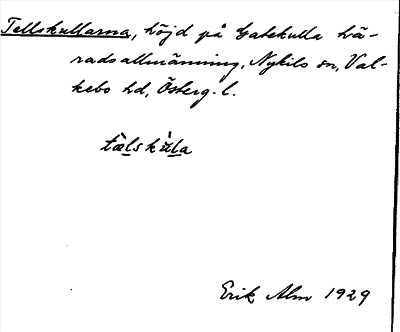 Tellskullarna, höjd på Gatekulla hä-
radsallmänning, Nykils sn, Val-
kebo hd, Österg. l.
tæ̀lskùla
Erik Alm 1929